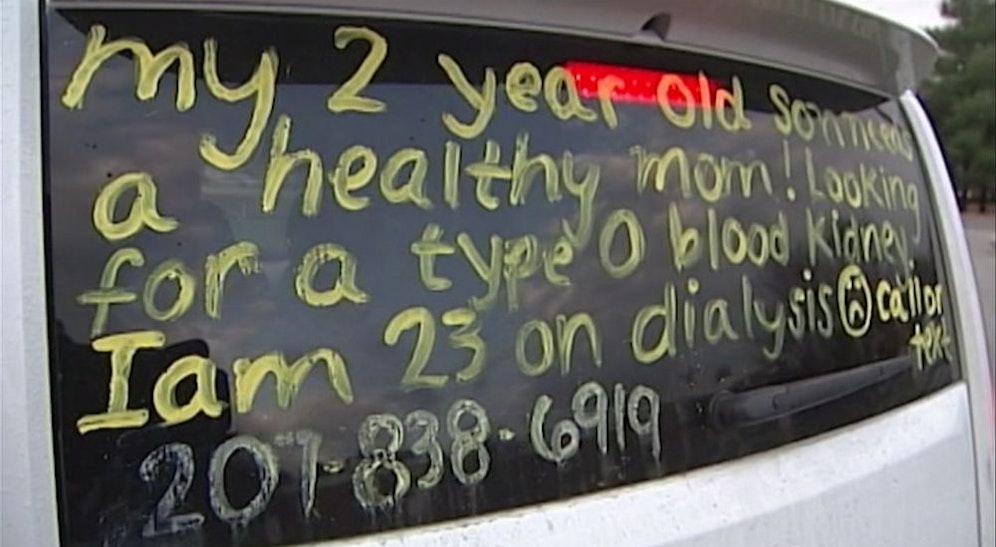 my 2 year old son needs
a healthy mom! Looking
for a type O blood kidney.
I am 23 on dialysis ☹ call or
text
207-838-6919